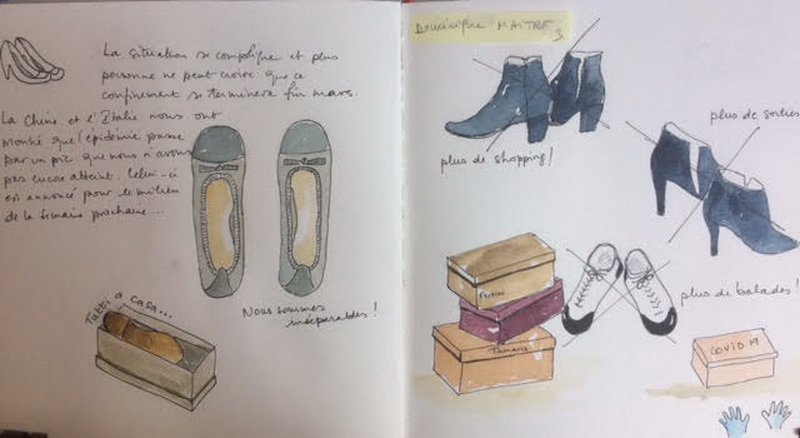 La situation se complique et plus
personne ne peut croire que ce
confinement se terminera fin mars.
La Chine et l'Italie nous ont
montré que l'épidémie passe
par un pic que nous n'avons
pas encore atteint. Celui-ci
est annoncé pour le milieu
de la semaine prochaine....
Nous sommes
inséparables!
Tutti a casa...
Dominique MAITRE 3
plus de shopping!
plus de sorties
plus de balades!
Tamaris
COVID 19